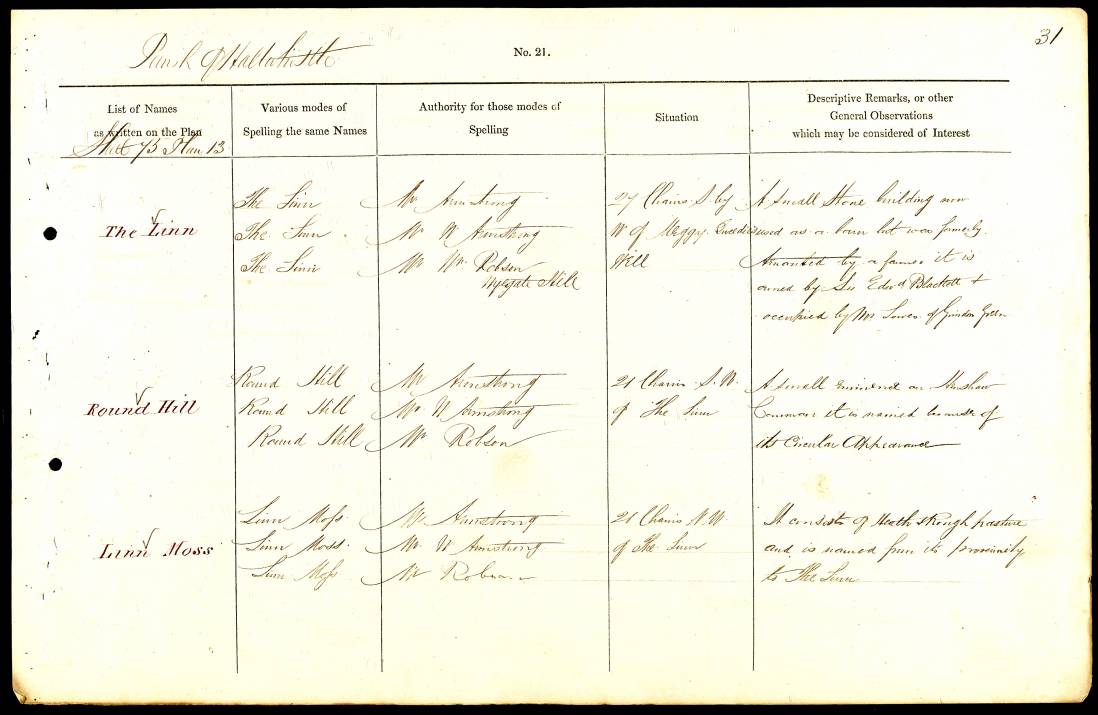 31
Parish of Haltwhistle
No. 21.
List of Names
as written on the Plan
Various modes of
Spelling the same Names
Authority for those modes of
Spelling
Situation
Descriptive Remarks, or other
General Observations
which may be considered of Interest
Sheet 75 Plan 13
The Linn
The Linn
The Linn
The Linn
Mr Armstrong
Mr W Armstrong
Mr Wm Robson
Hill
27 Chains S. by
W of Meggy
Well
A small Stone building now
used as a barn but was formerly
by a farmer it is
owned by Sir Edwd Blackett &
occupied by Mr of Grindon Green
Round Hill
Round Hill
Round Hill
Round Hill
Mr Armstrong
Mr W Armstrong
Mr Robson
21 Chains S.W.
of The Linn
A small eminence on Henshaw
Common it is named because of
its Circular Appearance
Linn Moss
Linn Moss
Linn Moss
Linn Moss
Mr Armstrong
Mr W Armstrong
Mr Robson
21 Chains N.W.
of The Linn
It consists of Heath & rough pasture
and is named from its proximity
to The Linn